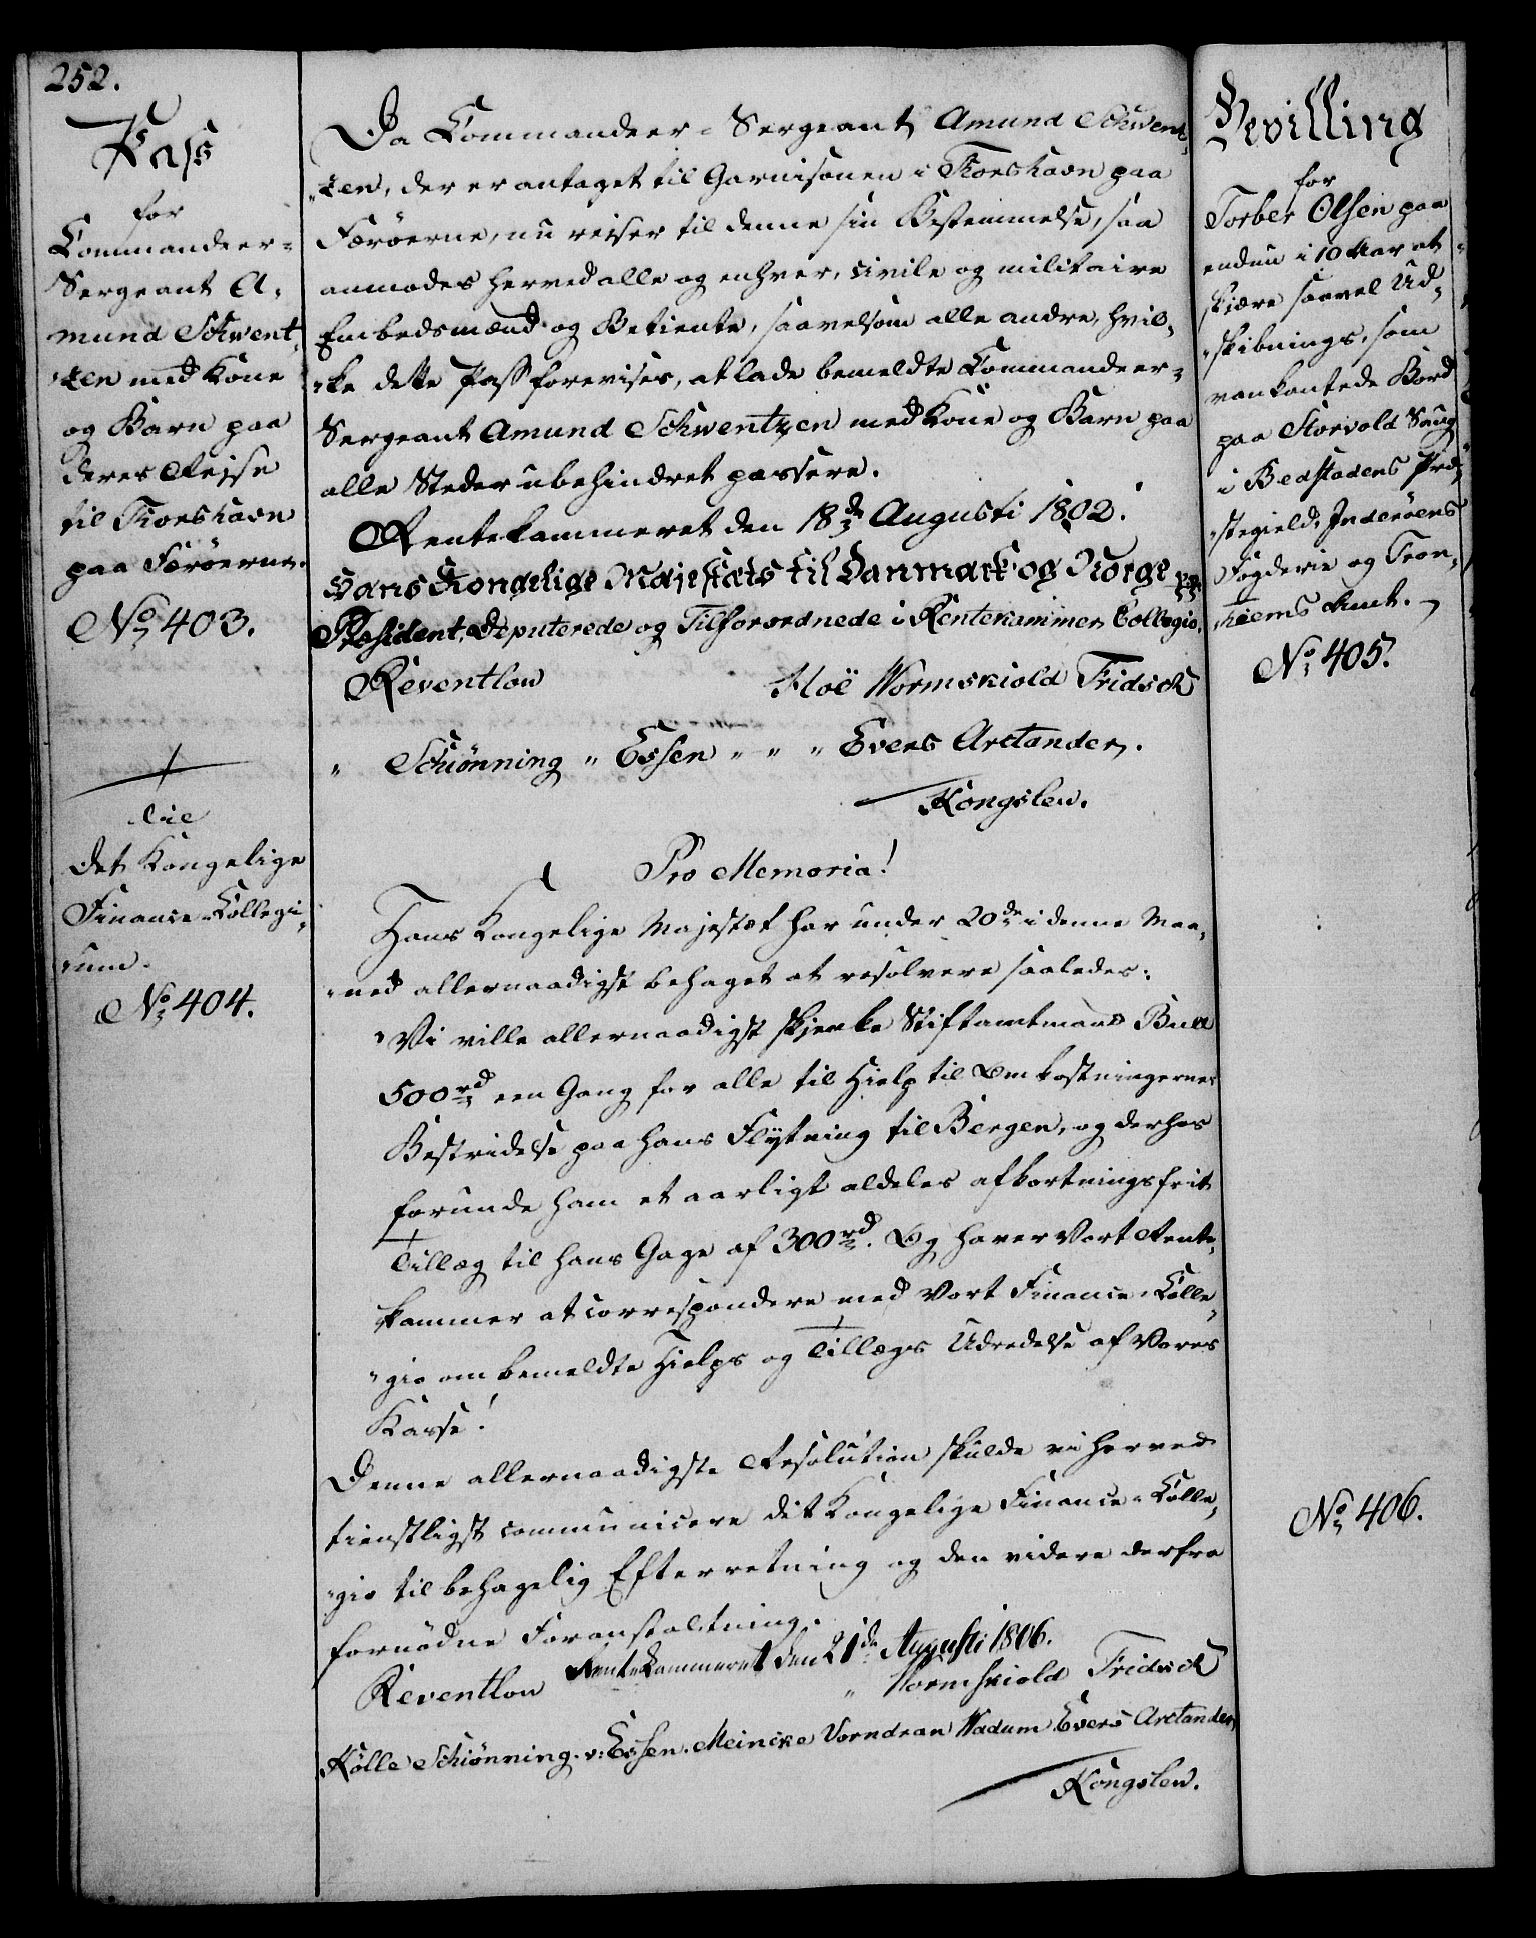 252.
Pass
for
Commandeer-
Sergeant A,
mund Schwent,
"zen med Kone
og Barn paa
deres Reise
til Thorshavn
paa Færöerne.
No 403.
Da Commandeer-Sergeant Amund Schwent,
"zen, der er antaget til Garnisonen i Thorshavn paa
Færöerne, nu reiser til denne sin Bestemmelse, saa
anmodes herved alle og enhver, civile og militaire
Embedsmænd og Betiente, saavelsom alle andre, hvil,
"ke dette Pass forevises, at lade bemeldte Commandeer-
Sergeant Amund Schwentzen med Kone og Barn paa
alle Steder ubehindret passere.
Rentekammeret den 18de Augusti 1802.
Hans Kongelige Majestæts til Danmark og Norge pp.
Præsident, Deputerede og Tilforordnede i Rentekammer Collegio.
Reventlow Hoë Wormskiold Fridsch
" Schiønning " Essen " " " Evers Arctander.
Kongslew.
Til
Det Kongelige
Finance-Collegi,
"um.
No 404.
Pro Memoria!
Hans Kongelige Majestæt har under 20de i denne Maa,
"ned allernaadigst behaget at resolvere saaledes:
"Vi ville allernaadigst skjenke Stiftamtmand Bull
500rd een Gang for alle til Hielp til Omkostningernes
Bestridelse paa hans Flytning til Bergen, og derhos
forunde ham et aarligt aldeles afkortningsfrit
Tillæg til hans Gage af 300rd. Og haver Vort Rente,
kammer at correspondere med Vort Finance-Colle,
"gio om bemeldte Hielps og Tillægs Udredelse af Vores
Kasse!
Denne allernaadigste Resolution skulde vi herved
tienstligst communicere det Kongelige Finance-Colle,
"gio til behagelig Efterretning og den videre derfra
fornödne Foranstaltning.
Rentekammeret den 21de Augusti 1806.
Reventlow " Wormskiold Fridsch
Kölle Schiønning. v: Essen. Meincke Vorndran Wadum Evers Arctander
Kongslew.
Bevilling
for
Torber Olsen paa
endnu i 10 Aar at
skiære saavel Ud,
"skibnings, som
vankantede Bord
paa Storvold Saug
i Bedstadens Præ,
"stegield, Inderöens
Fogderie og Tron,
hiems Amt.
No 405.
No 406.